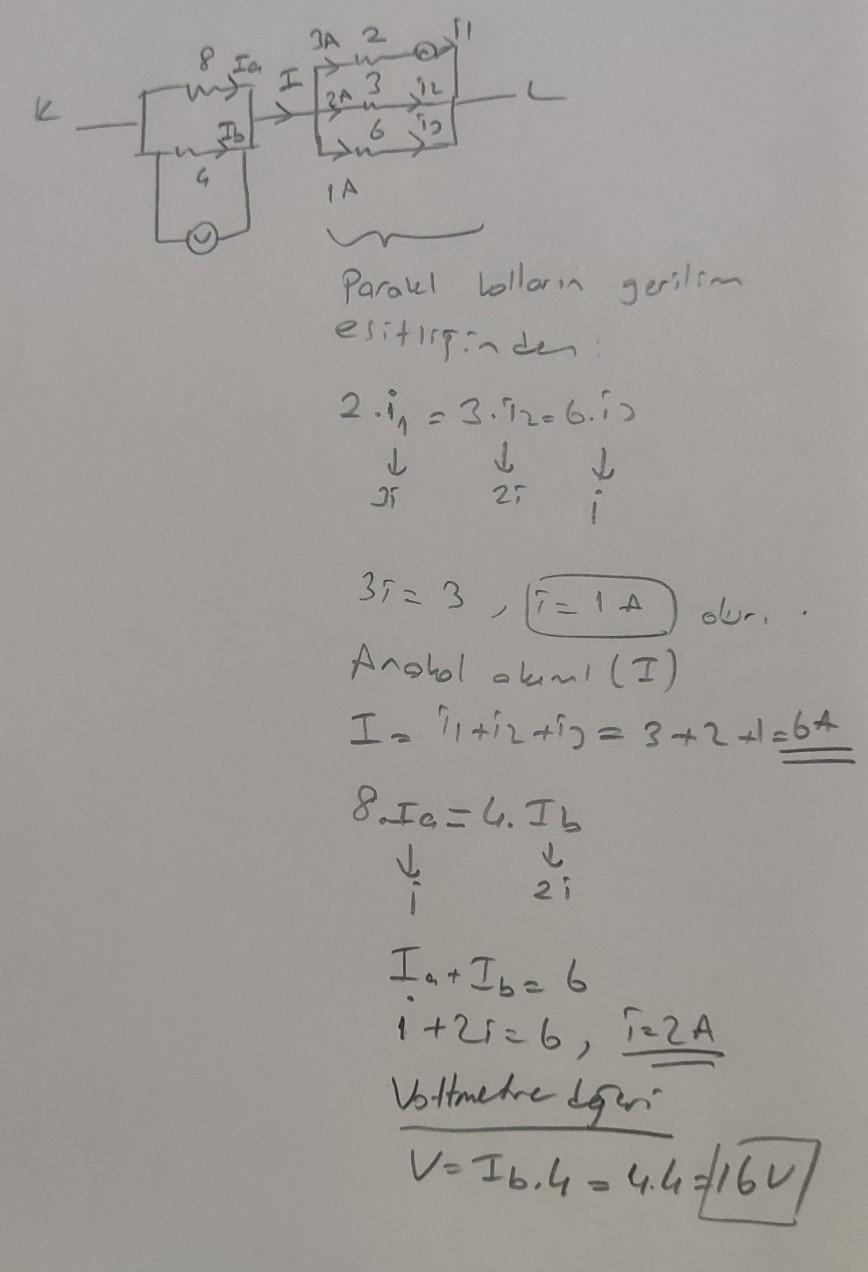 8 Ia
3A 2 i1
I
K
2A 3 i2
L
Ib
6 i3
4
1A
V
Paralel kolların gerilim
eşitliğinden:
2.i1 = 3.i2 = 6.i3
↓ ↓ ↓
3i 2i i
3i = 3, i = 1 A olur.
Anakol akımı (I)
I = i1+i2+i3 = 3+2+1=6A
8.Ia = 4.Ib
↓ ↓
i 2i
Ia + Ib = 6
i + 2i = 6, i=2A
Voltmetre değeri
V = Ib.4 = 4.4 = 16V